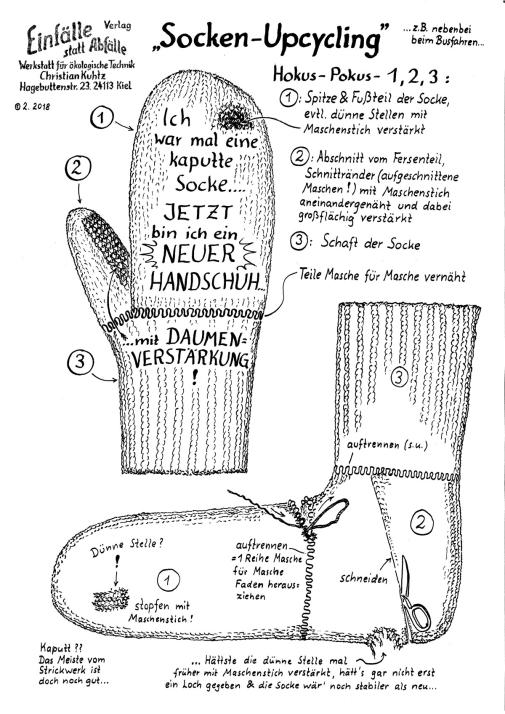 Einfälle Verlag
statt Abfälle
Werkstatt für ökologische Technik
Christian Kuhtz
Hagebuttenstr. 23. 24113 Kiel
© 2. 2018
„Socken-Upcycling"
...z.B. nebenbei
beim Busfahren...
Hokus-Pokus-1,2,3:
1: Spitze & Fußteil der Socke,
evtl. dünne Stellen mit
Maschenstich verstärkt
2: Abschnitt vom Fersenteil,
Schnittränder (aufgeschnittene
Maschen!) mit Maschenstich
aneinandergenäht und dabei
großflächig verstärkt
3: Schaft der Socke
Teile Masche für Masche vernäht
1
2
3
Ich
war mal eine
kaputte
Socke....
JETZT
bin ich ein
NEUER
HANDSCHUH...
...mit DAUMEN=
VERSTÄRKUNG
!
3
auftrennen (s.u.)
2
schneiden
auftrennen
=1 Reihe Masche
für Masche
Faden heraus-
ziehen
Dünne Stelle?
!
1
stopfen mit
Maschenstich!
Kaputt??
Das Meiste vom
Strickwerk ist
doch noch gut...
... Hättste die dünne Stelle mal
früher mit Maschenstich verstärkt, hätt's gar nicht erst
ein Loch gegeben & die Socke wär' noch stabiler als neu...